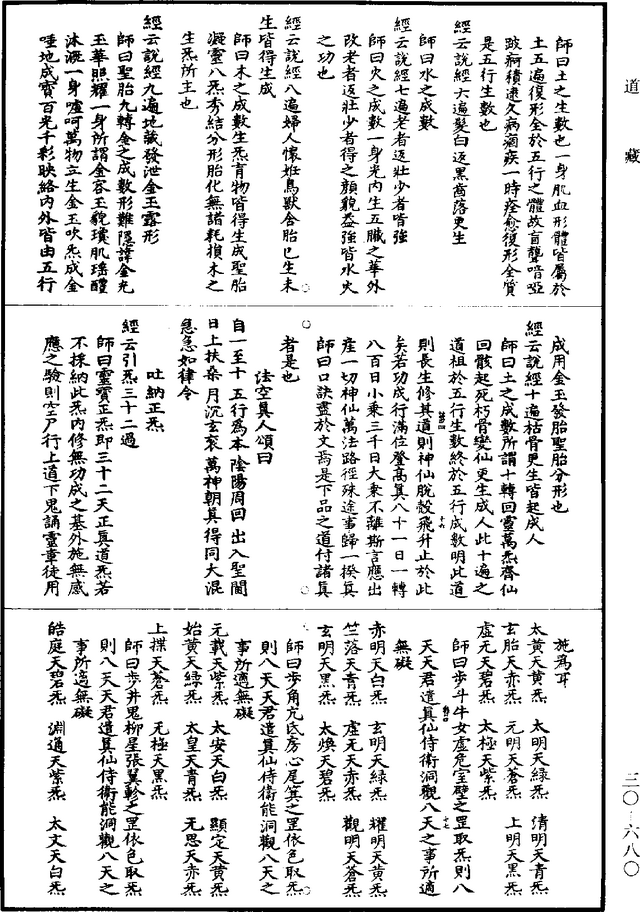 道藏
師曰土之生數也一身肌血形體皆屬於
土五遍復形全於五行之體故盲聾喑啞
跛痾積逮久病痼疾一時痊愈復形全質
是五行生數也
經云說經六遍髮白返黑齒落更生
師曰水之成數
經云說經七遍老者返壯少者皆強
師曰火之成數一身光内生五臟之華外
改老者返壯少者得之顏貌益強皆水火
之功也
經云說經八遍婦人懷妊鳥獸含胎已生未
生皆得生成
師曰木之成數生炁育物皆得生成聖胎
凝靈八炁秀結分形胎化無諸耗損木之
生炁所主也
經云說經九遍地藏發泄金玉露形
師曰聖胎九轉金之成數形難隱諱金光
玉華照耀一身所謂金容玉貌瓊肌瑤體
沐溉一身噓呵萬物立生金玉吹炁成金
唾地成寶百光千彩映絡内外皆由五行
成用金玉發胎聖胎分形也
經云說經十遍枯骨更生皆起成人
師曰土之成數所謂十轉回靈萬炁齊仙
回骸起死朽骨變仙更生成人此十遍之
道祖於五行生數終於五行成數明此道
則長生修其道則神仙脫殼飛升止於此
矣若功成行滿位登高真八十一日一轉
八百日小乘三千日大乘不離斯言應出
產一切神仙萬法路徑殊途事歸一揆真
師曰口訣盡於文焉是下品之道付諸真
者是也
法空真人頌曰
自一至十五行為本陰陽周回出入聖閫
日上扶桒月沉玄衮萬神朝真得同大混
急急如律令
吐納正炁
經云引炁三十二過
師曰靈寶正炁即三十二天正真道炁若
不採納此炁内修無功成之基外施無感
應之驗則空尸行上道下鬼誦靈章徒用
施為耳
太黃天黃炁 太明天綠炁 清明天青炁
玄胎天赤炁 元明天蒼炁 上明天黑炁
虛无天碧炁 太極天紫炁
師曰步斗牛女虛危室壁之罡取炁則八
天天君遣真仙侍衛洞觀八天之事所適
無礙
赤明天白炁 玄明天綠炁 耀明天黃炁
竺落天青炁 虛无天赤炁 觀明天蒼炁
玄明天黑炁 太煥天碧炁
師曰步角亢氐房心尾箕之罡依色取炁
則八天天君遣真仙侍衛能洞觀八天之
事所適無礙
元載天紫炁 太安天白炁 顯定天黃炁
始黃天綠炁 太皇天青炁 无思天赤炁
上揲天蒼炁 无極天黑炁
師曰步井鬼柳星張翼軫之罡依色取炁
則八天天君遣真仙侍衛能洞觀八天之
事所適無礙
皓庭天碧炁 淵通天紫炁 太文天白炁
三〇-六八〇